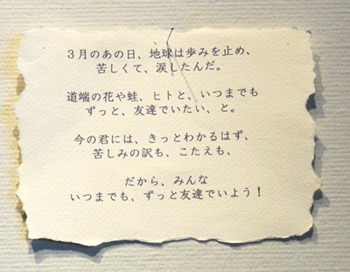 3月のあの日、地球は歩みを止め、
苦しくて、涙したんだ。
道端の花や蛙、ヒトと、いつまでも
ずっと、友達でいたい、と。
今の君には、きっとわかるはず、
苦しみの訳も、こたえも、
だから、みんな
いつまでも、ずっと友達でいよう！